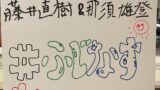 藤井直樹&那須雄登
#ふじなす